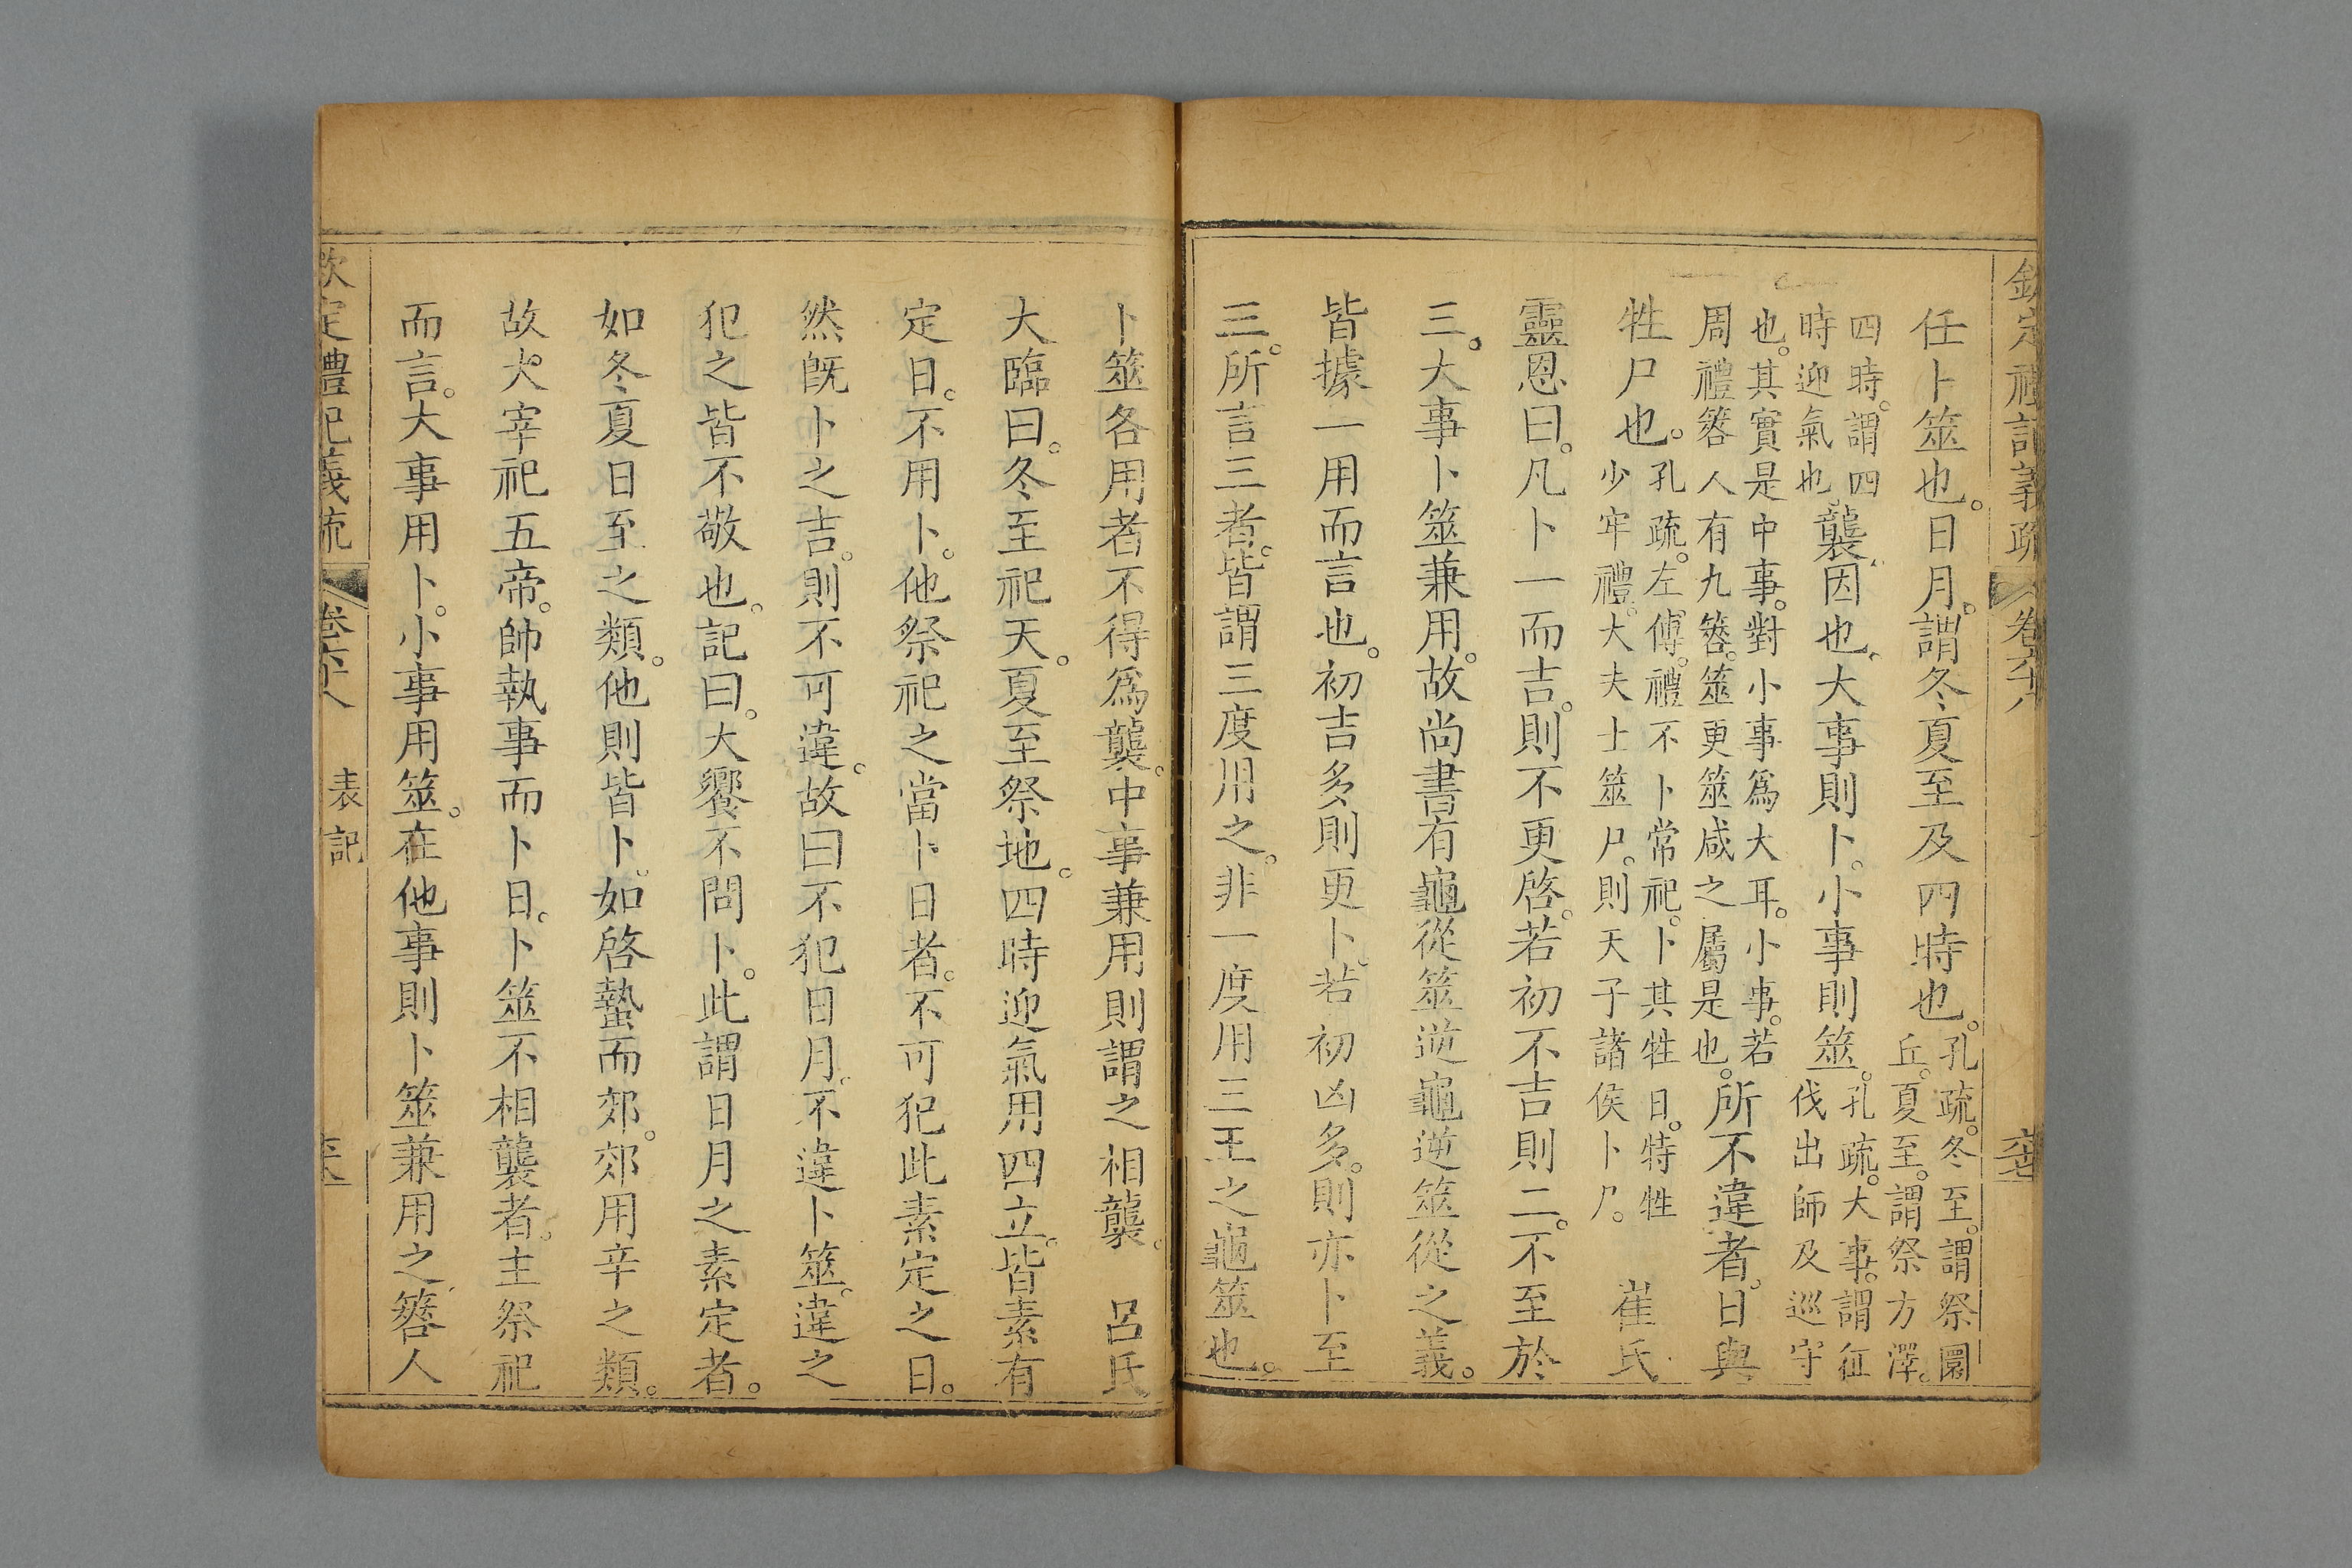 欽定禮記義疏 卷六十八
任卜筮也。日月。謂冬夏至及四時也。孔疏。冬至。謂祭圜
丘。夏至。謂祭方澤。
四時。謂四
時迎氣也。襲因也。大事則卜。小事則筮。孔疏。大事。謂征
伐出師及巡守
也。其實是中事。對小事爲大耳。小事。若
周禮簭人有九簭。筮更筮咸之屬是也。所不違者。日與
牲尸也。孔疏。左傳。禮不卜常祀。卜其牲日。特牲
少牢禮。大夫士筮尸。則天子諸侯卜尸。崔氏
靈恩曰。凡卜一而吉。則不更啓。若初不吉則二。不至於
三。大事卜筮兼用。故尚書有龜從筮逆龜逆筮從之義。
皆據一用而言也。初吉多則更卜。若初凶多。則亦卜至
三。所言三者。皆謂三度用之。非一度用三王之龜筮也。
卜筮各用者不得爲襲。中事兼用則謂之相襲。 呂氏
大臨曰。冬至祀天。夏至祭地。四時迎氣用四立。皆素有
定日。不用卜。他祭祀之當卜日者。不可犯此素定之日。
然旣卜之吉。則不可違。故曰不犯日月。不違卜筮。違之
犯之皆不敬也。記曰。大饗不問卜。此謂日月之素定者。
如冬夏日至之類。他則皆卜。如啓蟄而郊。郊用辛之類。
故大宰祀五帝。帥執事而卜日。卜筮不相襲者。主祭祀
而言。大事用卜。小事用筮。在他事則卜筮兼用之。簭人
欽定禮記義疏 卷六十八 表記